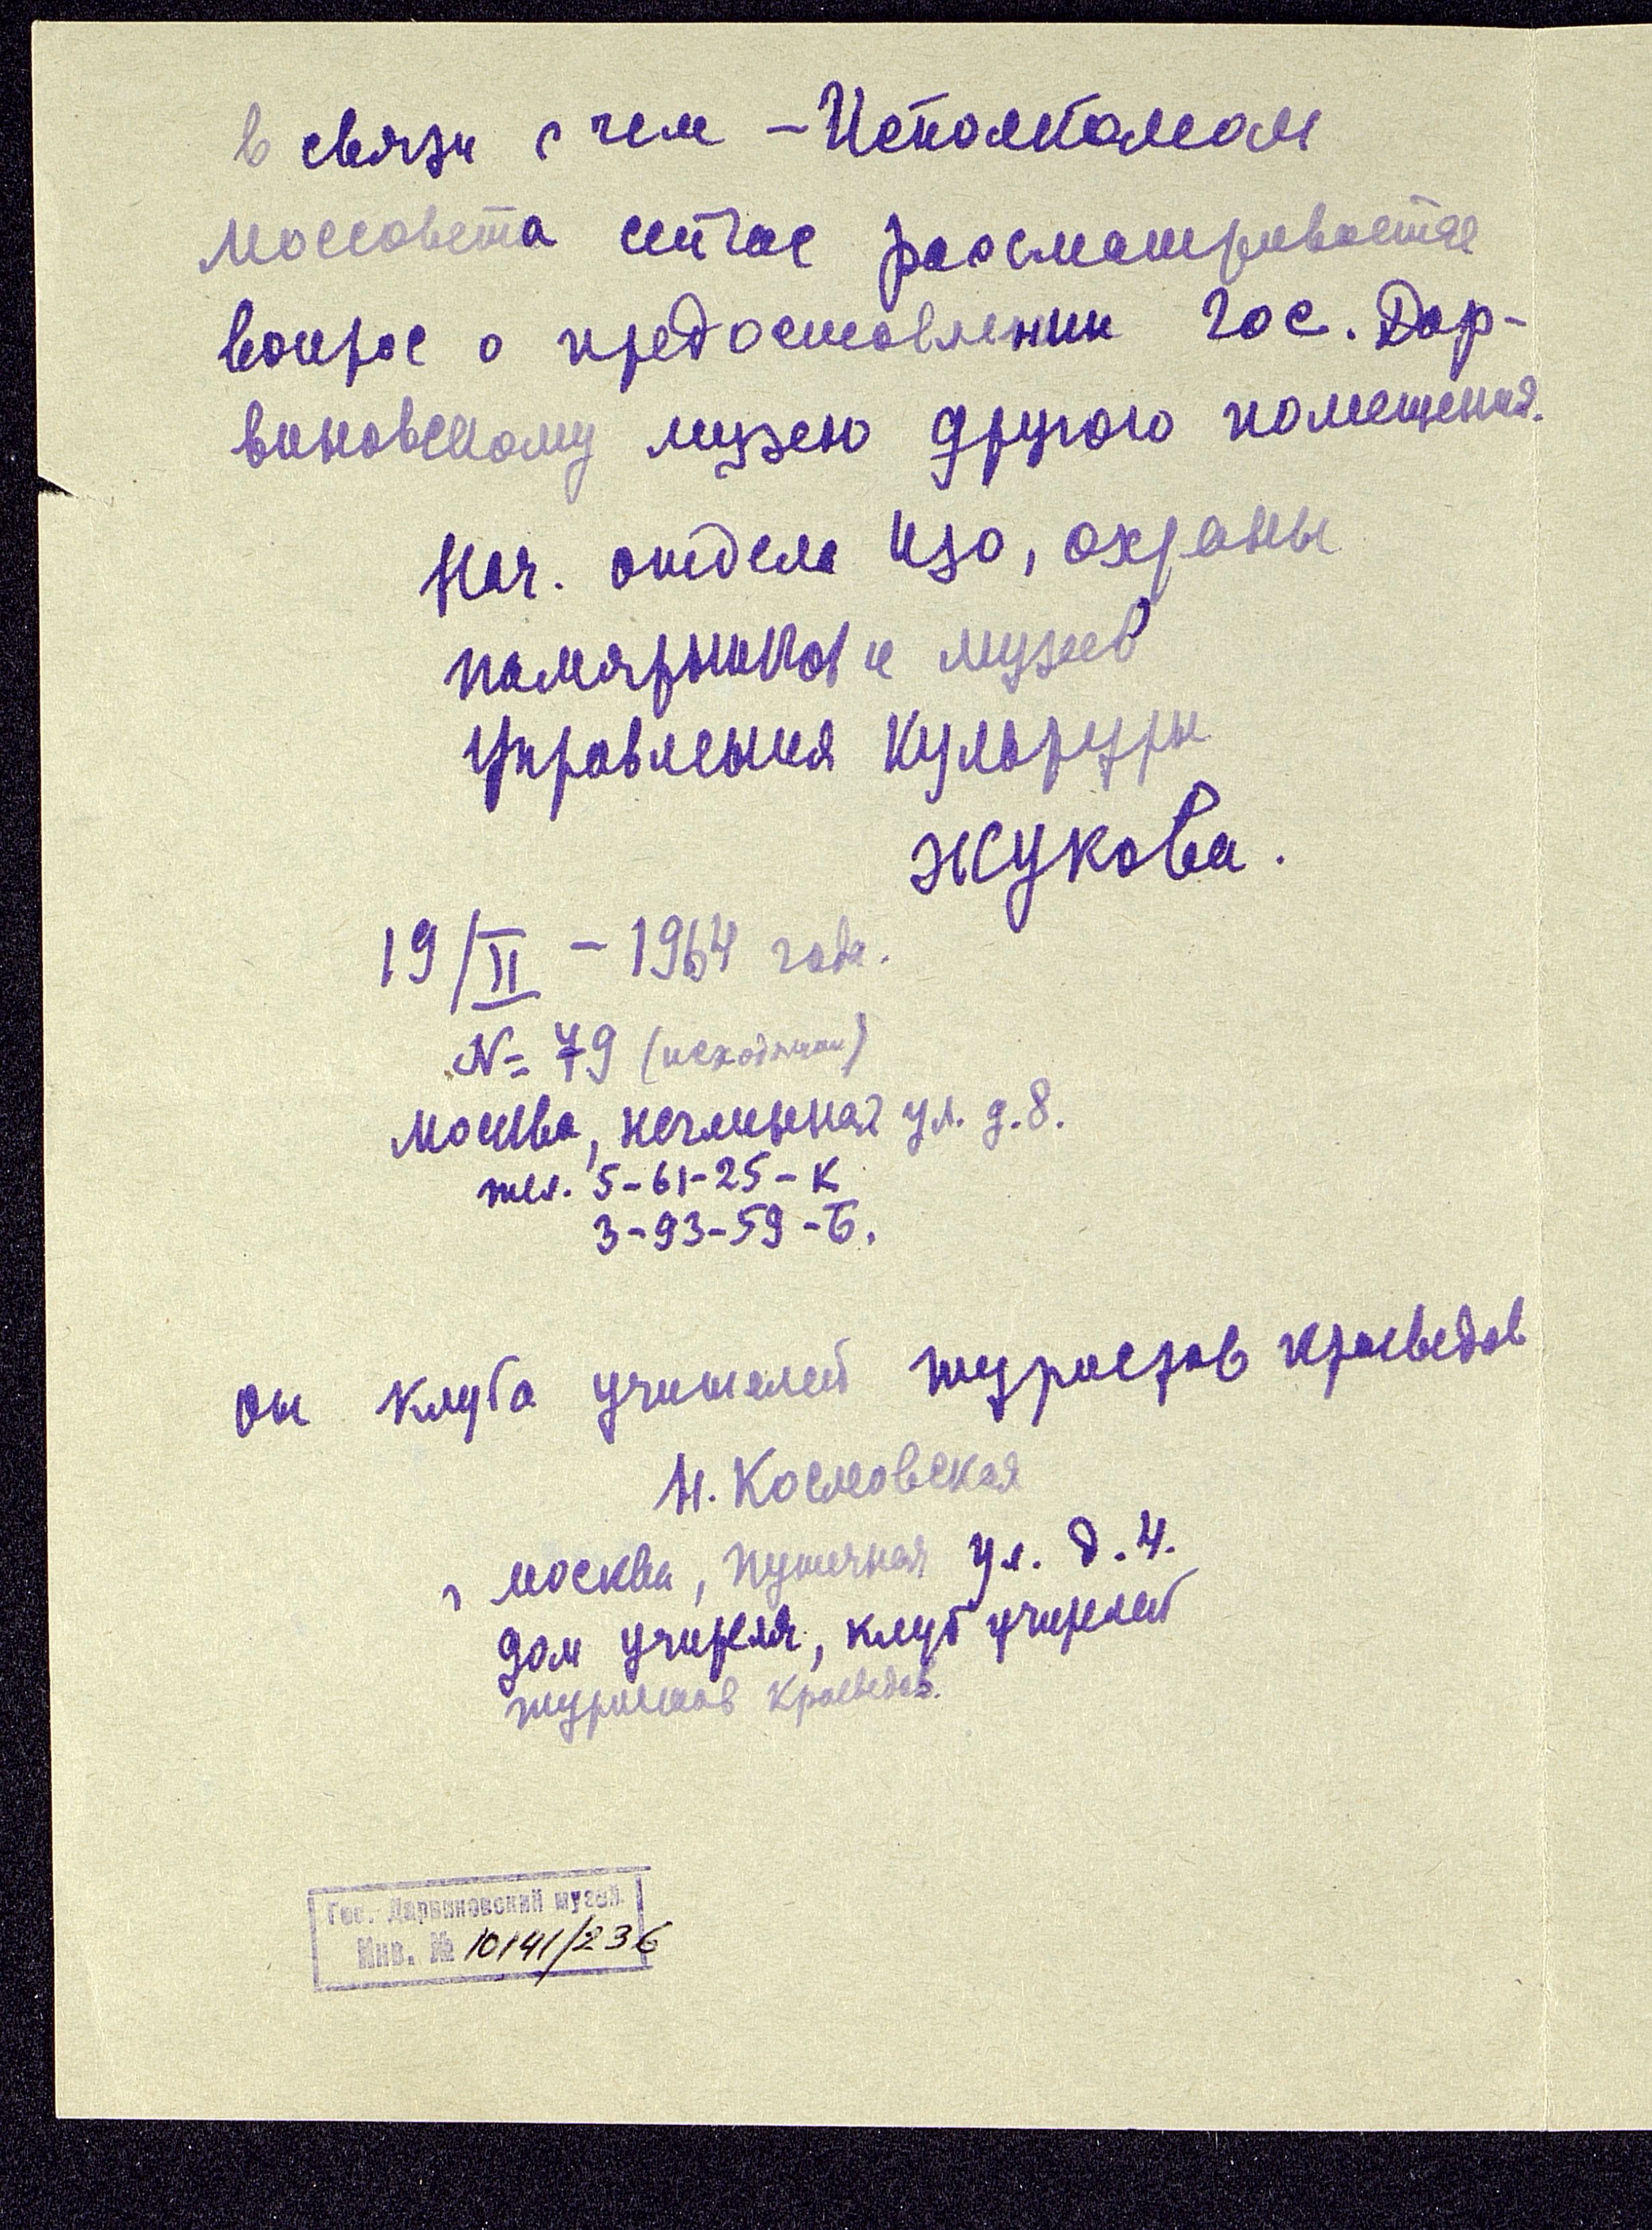 в связи с чем – Исполкомом
Моссовета сейчас рассматривается
вопрос о предоставлении Гос. Дар-
виновскому музею другого помещения.
Нач. отдела Изо, охраны
памятников и музеев
Управления Культуры
Жукова.
19/II – 1964 года.
№ 79 (исходящий)
Москва, Неглинная ул. д. 8.
тел. 5-61-25-К
3-93-59-Б.
От клуба учителей туристов краеведов
Н. Космовская
г Москва, Пушечная ул. д. 4.
Дом учителя, клуб учителей
туристов краеведов.
Гос. Дарвиновский музей
Инв. № 10141/236